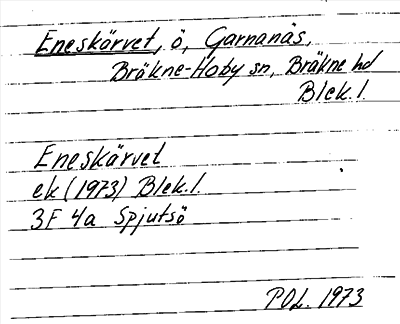 Eneskärvet, ö, Garnanäs,
Bräkne-Hoby sn, Bräkne hd
Blek.l.
Eneskärvet
ek (1973) Blek.l.
3F 4a Spjutsö
POL. 1973